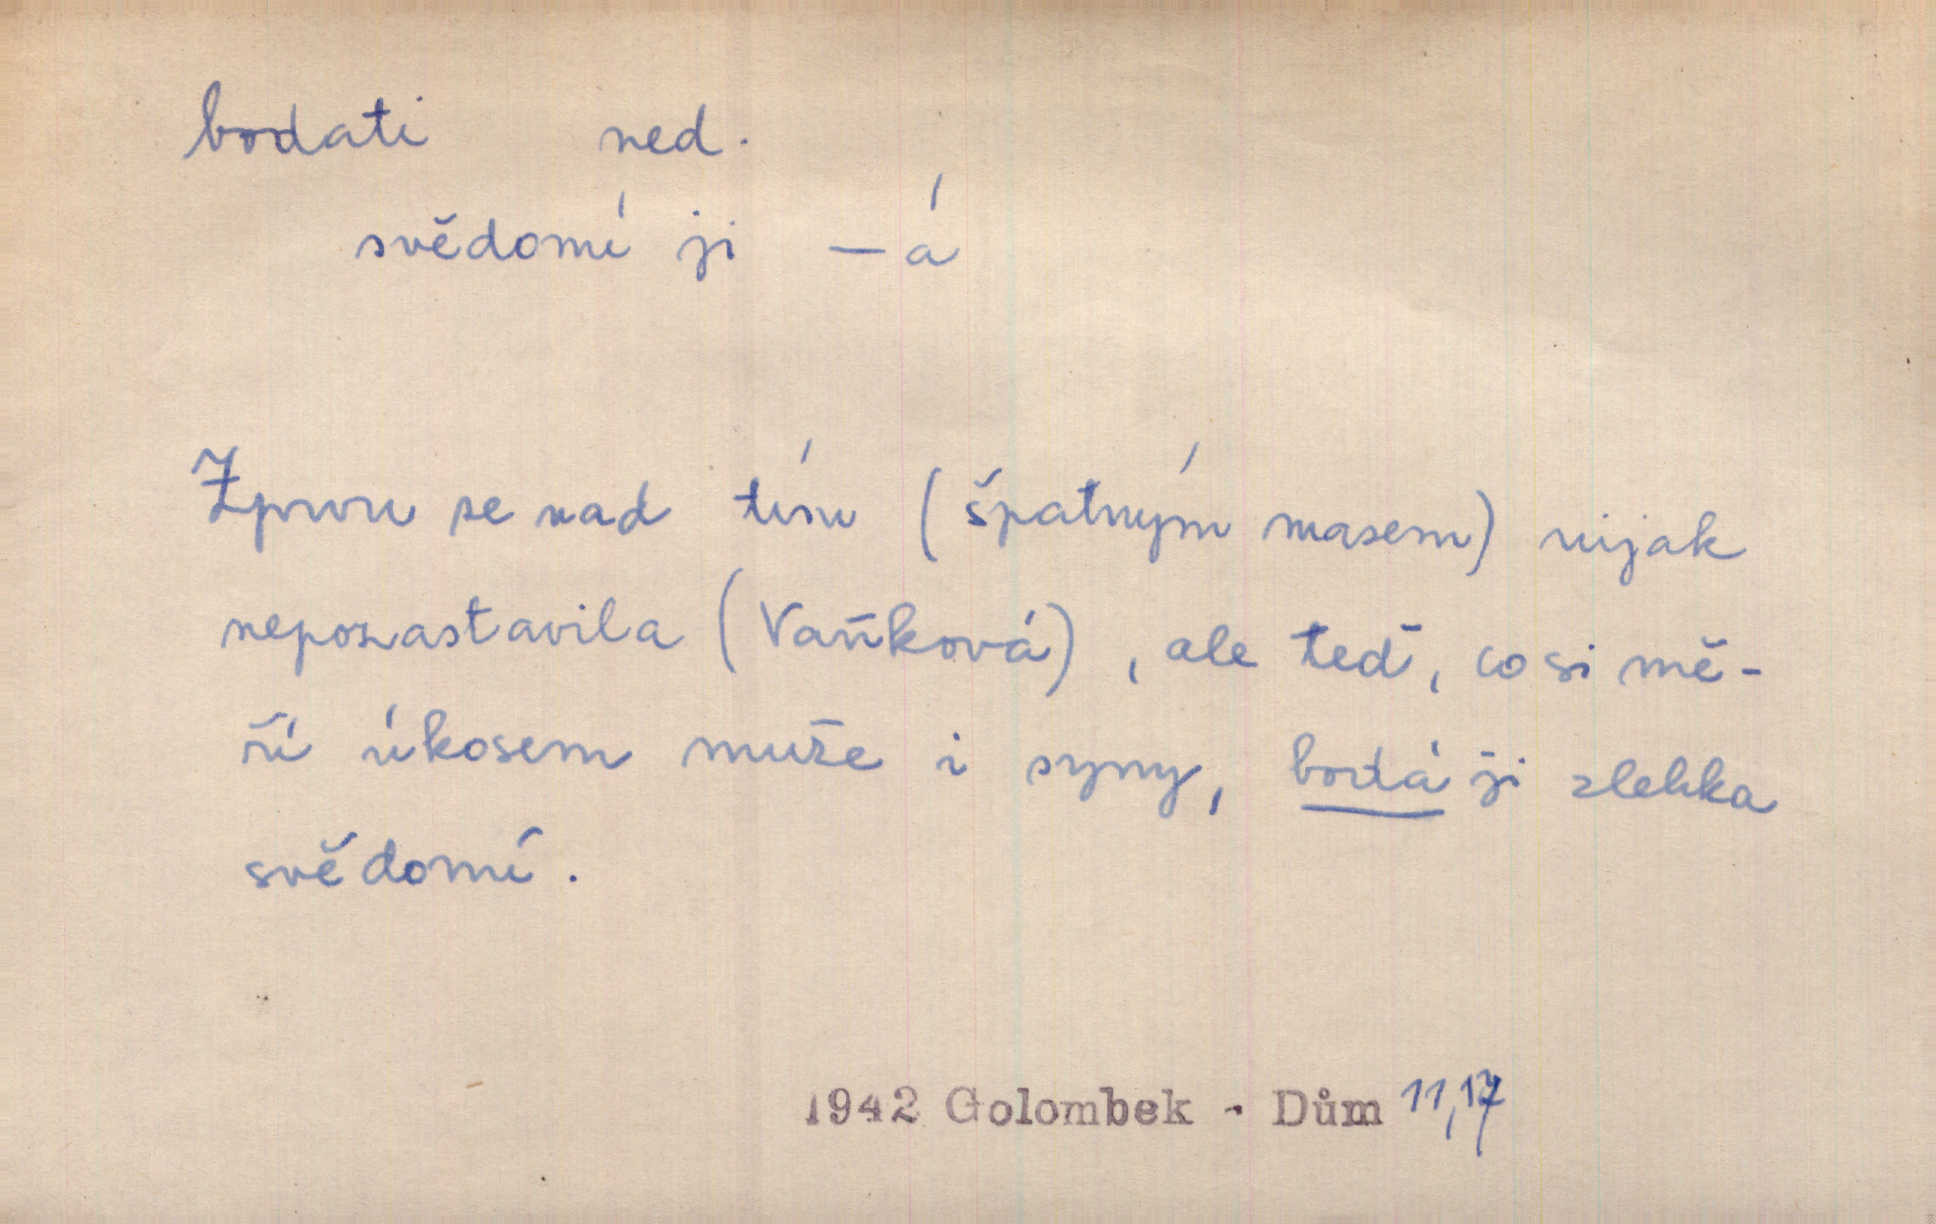 bodati ned.
svědomí ji —á
Zprvu se nad tím (špatným masem) nijak
nepozastavila (Vaňková), ale teď, co si mě-
ří úkosem muže i syny, bodá ji zlehka
svědomí.
1942 Golombek - Dům 11,17